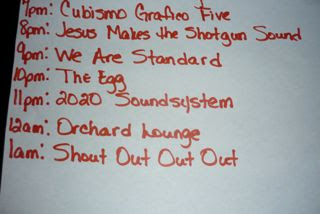 7pm: Cubismo Grafico Five
8pm: Jesus Makes the Shotgun Sound
9pm: We Are Standard
10pm: The Egg
11pm: 2020 Soundsystem
12am: Orchard Lounge
1am: Shout Out Out Out